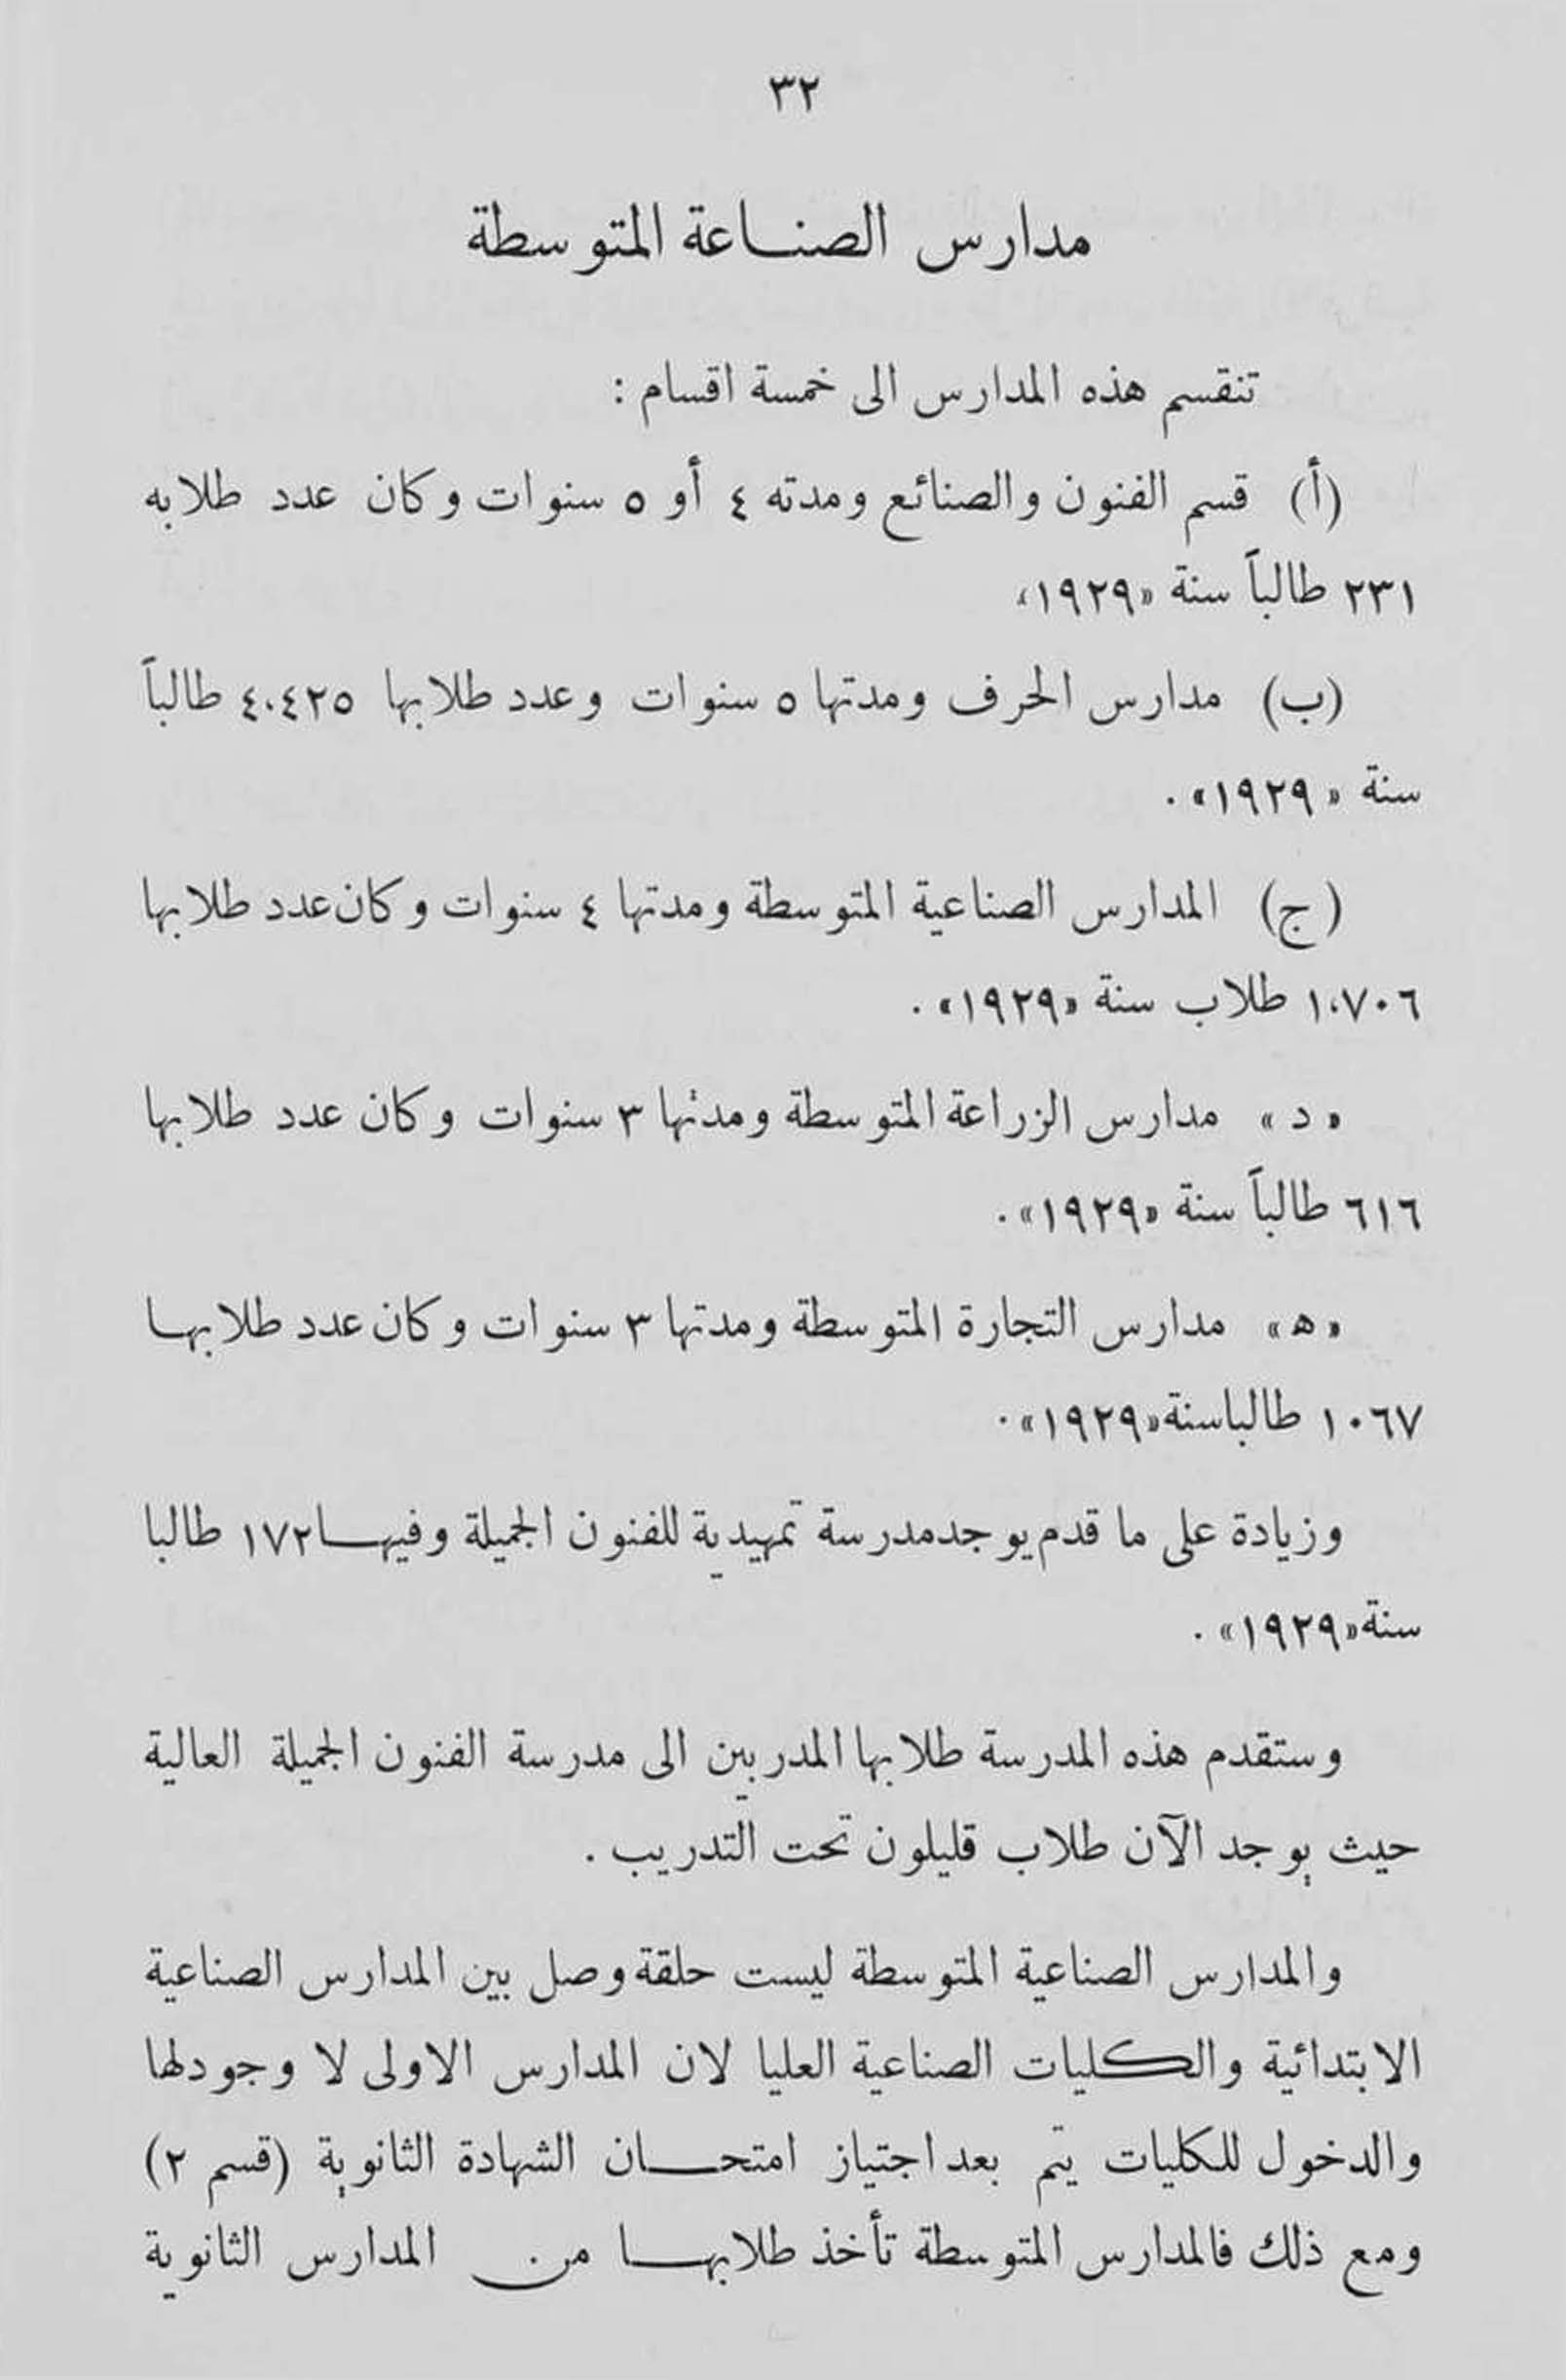 ٣٢
مدارس الصناعة المتوسطة
تنقسم هذه المدارس الى خمسة اقسام :
(أ) قسم الفنون والصنائع ومدته ٤ أو ٥ سنوات وكان عدد طلابه
٢٣١ طالباً سنة «١٩٢٩»
(ب) مدارس الحرف ومدتها ٥ سنوات وعدد طلابها ٤،٤٢٥ طالباً
سنة «١٩٢٩» .
(ج) المدارس الصناعية المتوسطة ومدتها ٤ سنوات وكان عدد طلابها
١،٧٠٦ طلاب سنة «١٩٢٩» .
«د» مدارس الزراعة المتوسطة ومدتها ٣ سنوات وكان عدد طلابها
٦١٦ طالباً سنة «١٩٢٩» .
«ه» مدارس التجارة المتوسطة ومدتها ٣ سنوات وكان عدد طلابها
١٠٦٧ طالبا سنة «١٩٢٩» .
وزيادة على ما قدم يوجد مدرسة تمهيدية للفنون الجميلة وفيها ١٧٢ طالبا
سنة «١٩٢٩» .
وستقدم هذه المدرسة طلابها المدربين الى مدرسة الفنون الجميلة العالية
حيث يوجد الآن طلاب قليلون تحت التدريب .
والمدارس الصناعية المتوسطة ليست حلقة وصل بين المدارس الصناعية
الابتدائية والكليات الصناعية العليا لان المدارس الاولى لا وجود لها
والدخول للكليات يتم بعد اجتياز امتحان الشهادة الثانوية (قسم ٢)
ومع ذلك فالمدارس المتوسطة تأخذ طلابها من المدارس الثانوية